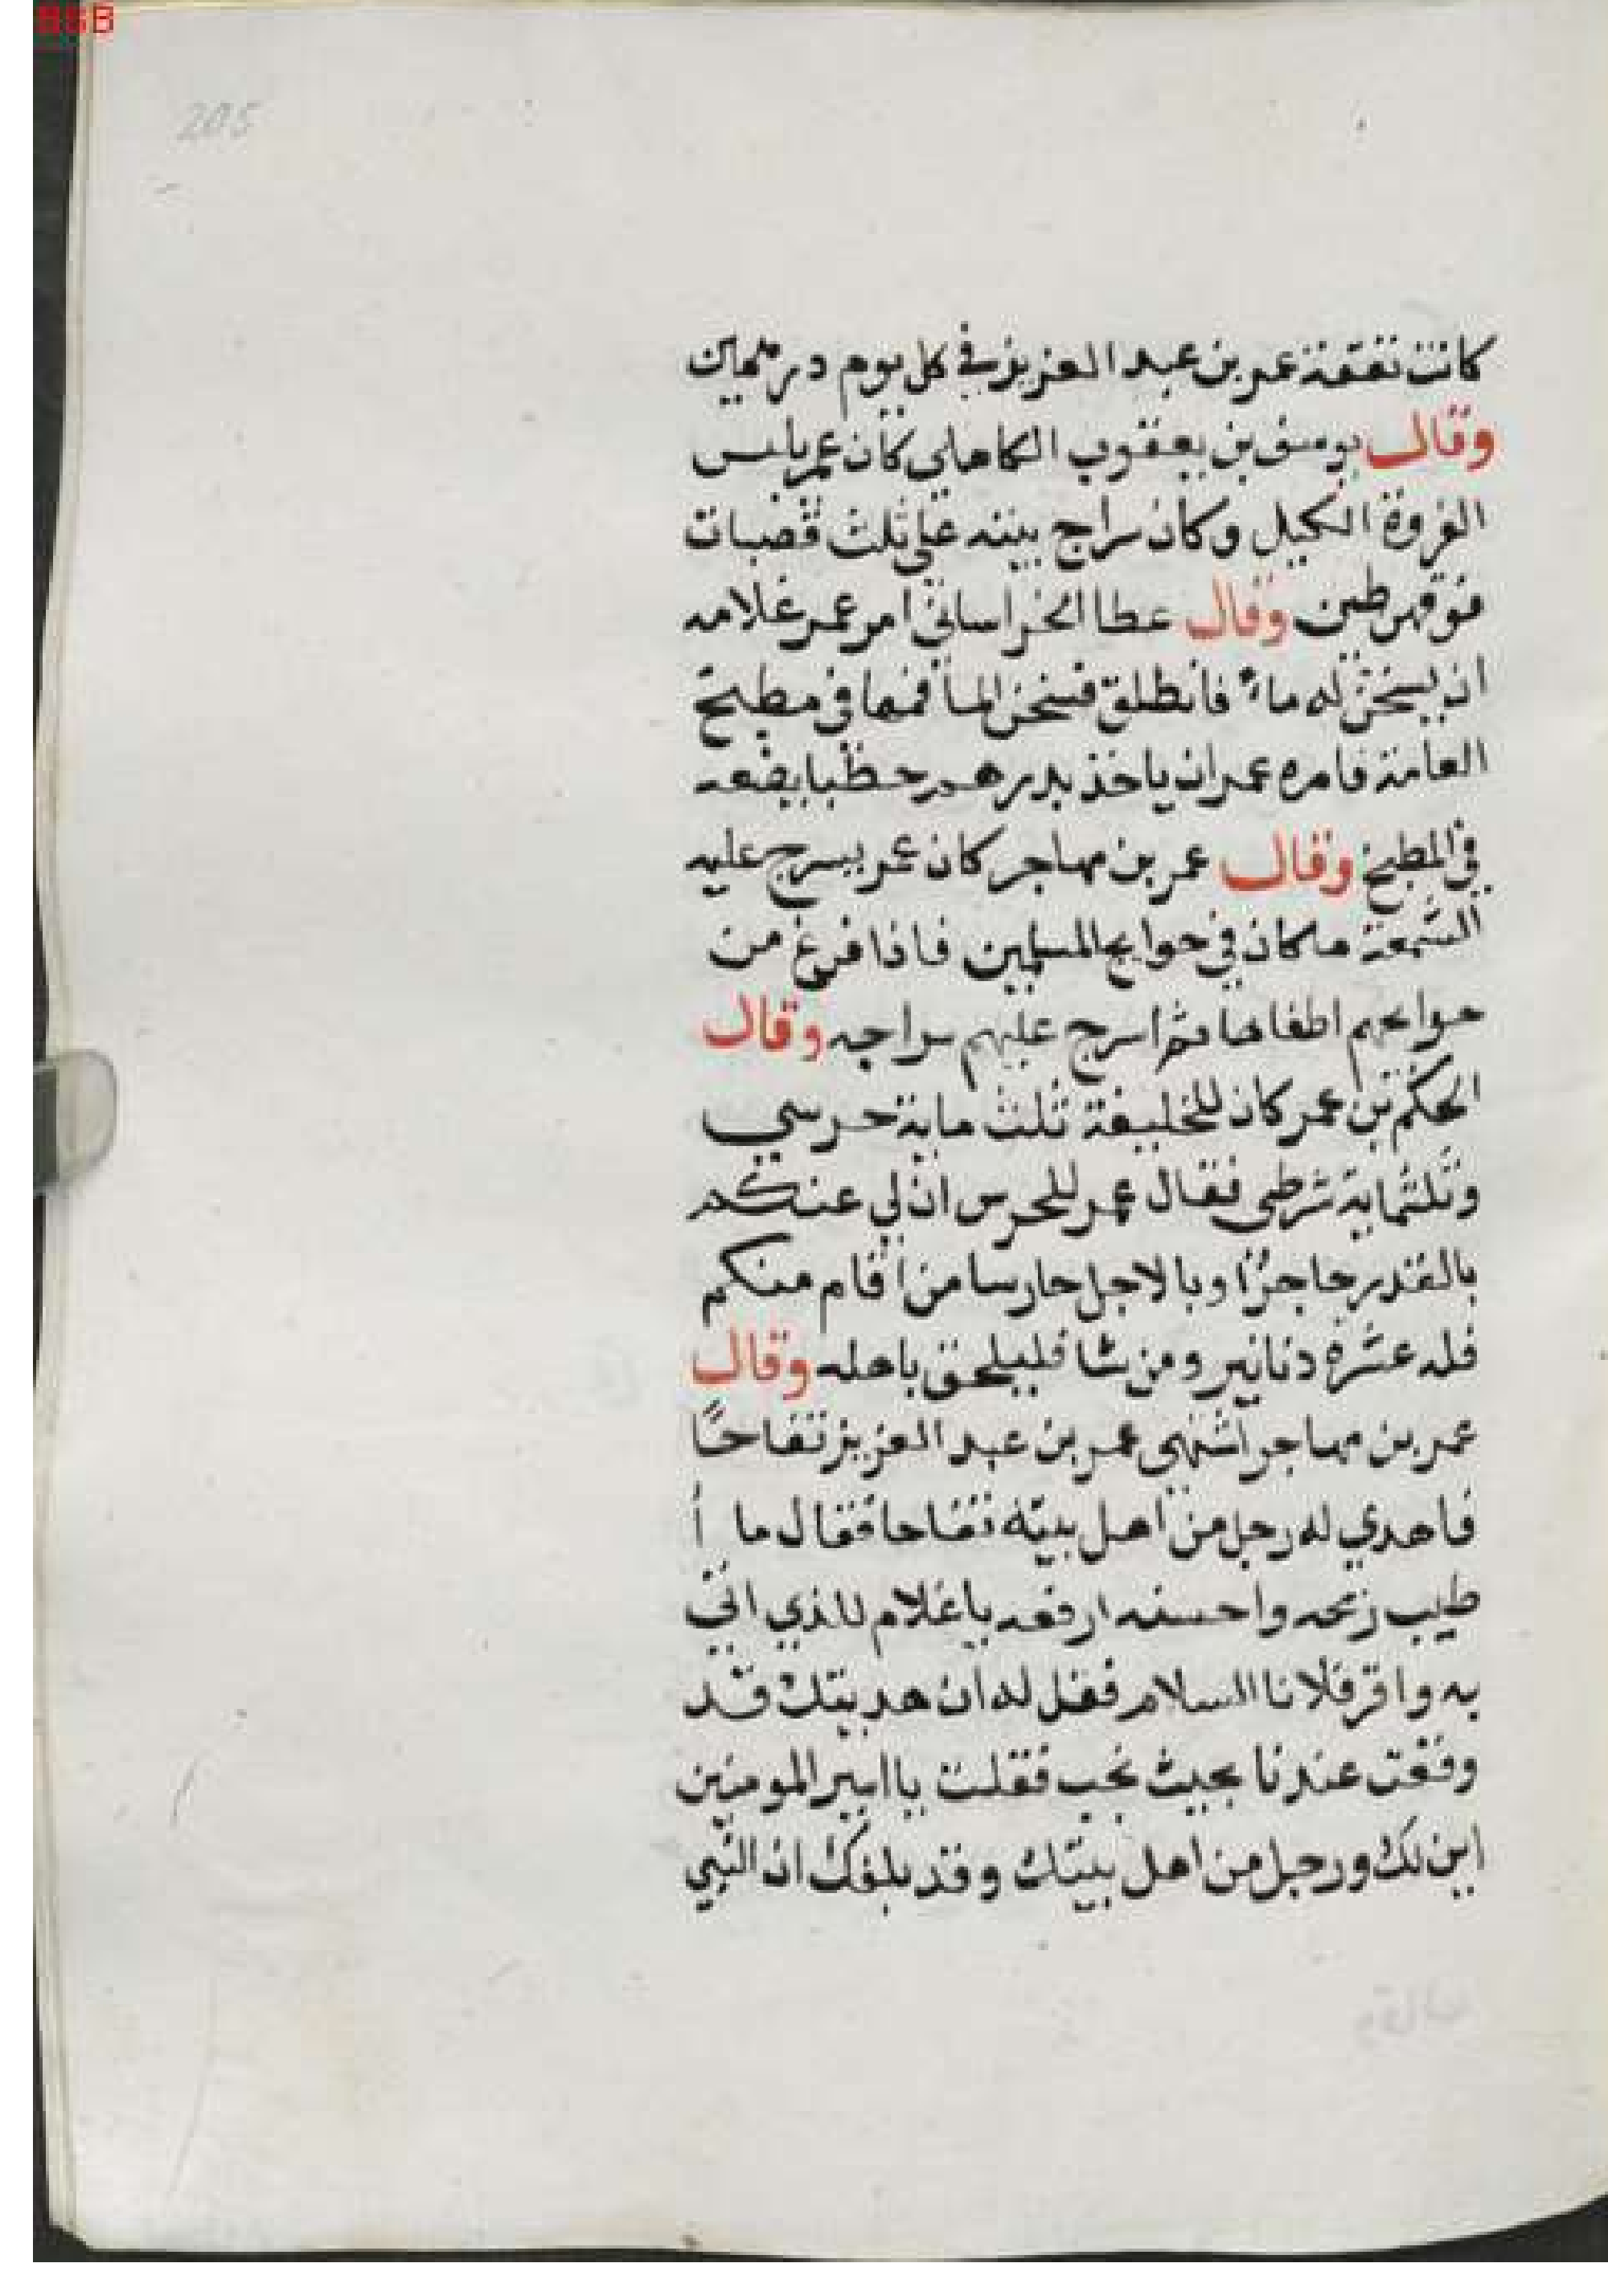 BSB
205
كانت نفقة عمر بن عبد العزيز في كل يوم درهمين
وقال يوسف بن يعقوب الكاهلي كان عمر يلبس
الفروة الكبل وكان سراج بيته علي ثلث قصبات
فوقهن طين وقال عطا الخراساني امر عمر غلامه
ان يسخن له ماء فانطلق فسخن الما فمنها في مطبخ
العامة فامره عمر ان ياخذ بدرهم حطبا يضعه
في المطبخ وقال عمر بن مهاجر كان عمر يسرج عليه
الشمعة ما كان في حوايج المسلمين فاذا فرغ من
حوايجهم اطفاها ثم اسرج عليهم سراجه وقال
الحكم بن عمر كان للخليفة ثلث ماية حرسي
وثلثماية شرطي فقال عمر للحرس ان لي عنكم
بالقدر حاجزا وبالاجل حارسا من اقام منكم
فله عشرة دنانير ومن شا فليلحق باهله وقال
عمر بن مهاجر اشتهي عمر بن عبد العزيز تفاحا
فاهدي له رجل من اهل بيته تفاحا فقال ما أ
طيب ريحه واحسنه ارفعه يا غلام للذي اتي
به واقر فلانا السلام فضل له ان هديتك قد
وقعت عندنا بحيث نحب فقلت يا امير المومنين
ابن لك ورجل من اهل بيتك وقد بلغك ان النبي